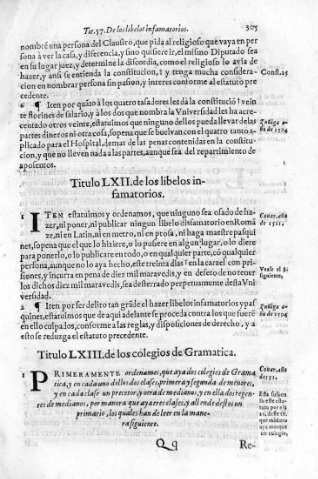 Tit. 57. De los libelos infamatorios. 305
nombre una persona del Claustro, que pida al religioso que vaya en per
sona a ver la casa, y diferencia, y sino quisiere ir, el mismo Diputado sea
en su lugar juez, y determine la discordia, como el religioso lo auia de
hazer, y ansi se entienda la constitucion, y tenga mucha considera-
cion en nombrar persona sin passion, y interes conforme al estatuto pre
cedente.
6 ¶ Iten por quāto à los quatro tassadores les dà la constituciō veīn
te florines de salario, y a los dos que nombra la Vniuersidad les ha acre-
centado otros veinte, estatuimos que ninguno dellos pueda lleuar de las
partes dineros ni otra cosa, so pena que se bueluan con el quatro tanto a-
plicado para el Hospital, demas de las penas contenidas en la constitu-
cion, y que no lleuen nada a las partes, aunque sea del repartimiento de
aposentos.
Titulo LXII. de los libelos in-
famatorios.
1 ITEN estatuimos y ordenamos, que ninguno sea osado de ha-
zer, ni poner, ni publicar ningun libelo disfamatorio en Roma
ce, ni en Latin, ni en metro, ni en prosa, ni haga maestre pasqui
nes, so pena que el que lo hiziere, o lo pusiere en algun lugar, o lo diere
para ponerlo, o lo publicare en todo, o en qualquier parte, cō qualquier
persona, aunque no lo aya hecho, este treinta dias en la carcel con pri-
siones, y incurra en pena de diez mil marauedis, y en defeto de no tener
los dichos diez mil marauedis, sea desterrado perpetuamente desta Vni
uersidad.
2 ¶ Iten por ser delito tan grāde el hazer libelos infamatorios y pas
quines, estatuimos que de aqui adelante se proceda contra los que fuerē
en ello culpados, conforme a las reglas, y disposiciones de derecho, y a
esto se reduzga el estatuto precedente.
Titulo LXIII. de los colegios de Gramatica.
1 PRIMERAMENTE ordenamos, que aya dos colegios de Grama
tica, y en cada vno dellos dos clases, primera y segunda de menores,
y en cada clase vn preceptor, y otra de medianos, y en ella dos regen-
tes de medianos, por manera que aya tres clases, y alli ende destos vn
primario, los quales han de leer en la mane-
ra siguiente.
Qq Re-